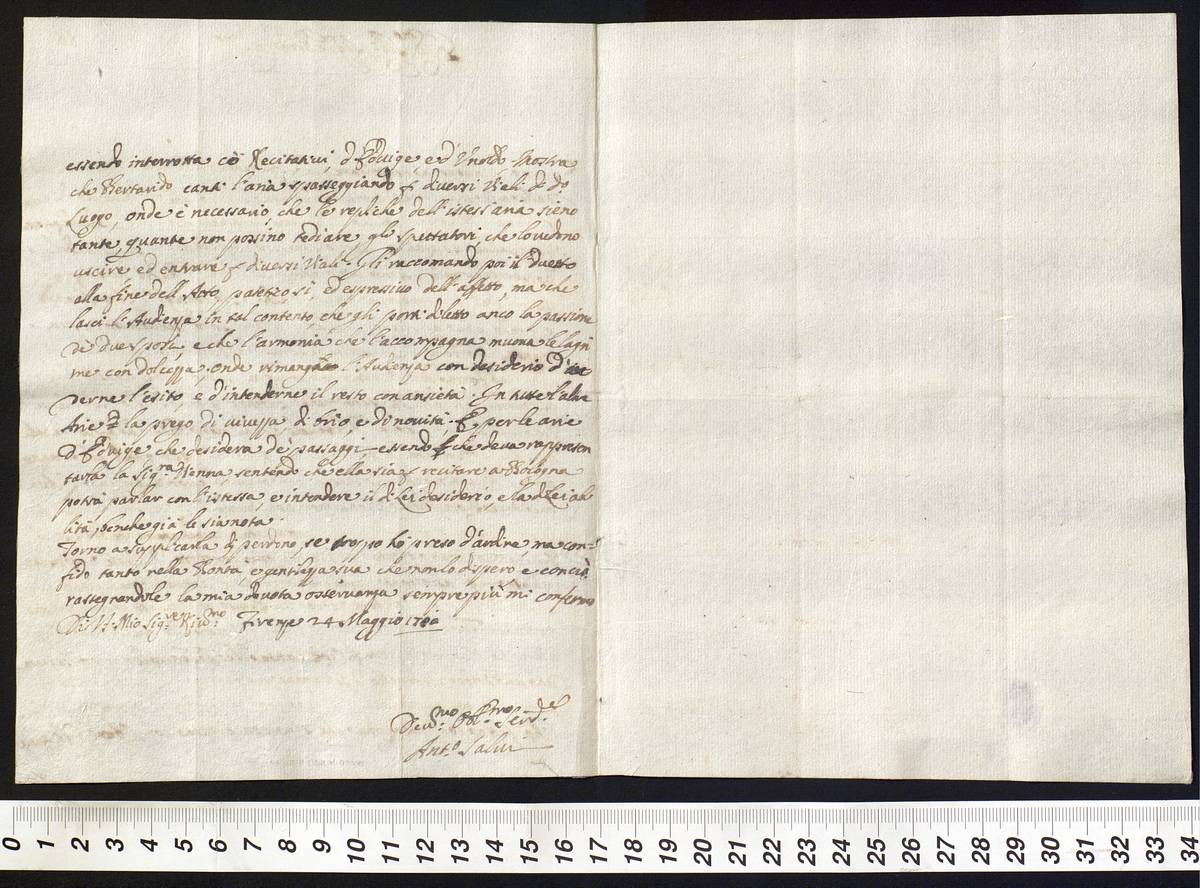 essendo interrotta coi Recitativi, d'Edvige, e d'Unoldo. Mostra
che Bertarido canti l'aria spasseggiando p diversi Viali di do
Luogo, onde è necessario, che le repliche dell'istess'aria sieno
tante, quante non possino tediare gli spettatori, che lo vedono
uscire ed entrare p diversi Viali. Gli raccomando poi il Duetto
alla fine dell'Atto patetico si, ed espressivo dell'affetto, ma che
lasci l'Audienza in tal contento, che gli porti diletto anco la passione
de due sposi, e che l'armonia che l'accompagna muova le lagri
me con dolcezza, onde rimanga l'Audienza con desiderio d'
derne l'esito e d'intenderne il resto con ansietà. In tutte l'altre
Arie la prego di vivezza, di brio e di novità. E per le arie
d'Edvige che desidera de' passaggi, essendo che deva rappresen
tarla la Sigra Nenna, sentendo che ella sia p recitare a Bologna
potrà parlar con l'istessa, e intendere il di Lei desiderio, e la di Lei abi
lità, benche già le sia nota.
Torno a supplicarla di perdono, se troppo ho preso d'ardire, ma con-
fido tanto nella Bontà, e gentilezza sua che non lo dispero e con ciò
rassegnandole la mia devota osservanza sempre più mi confermo
Di V. S. Mio Sigre Rivmo Firenze 24 Maggio
Devmo Oblmo Servre
Anto Salvi
0 1 2 3 4 5 6 7 8 9 10 11 12 13 14 15 16 17 18 19 20 21 22 23 24 25 26 27 28 29 30 31 32 33 34